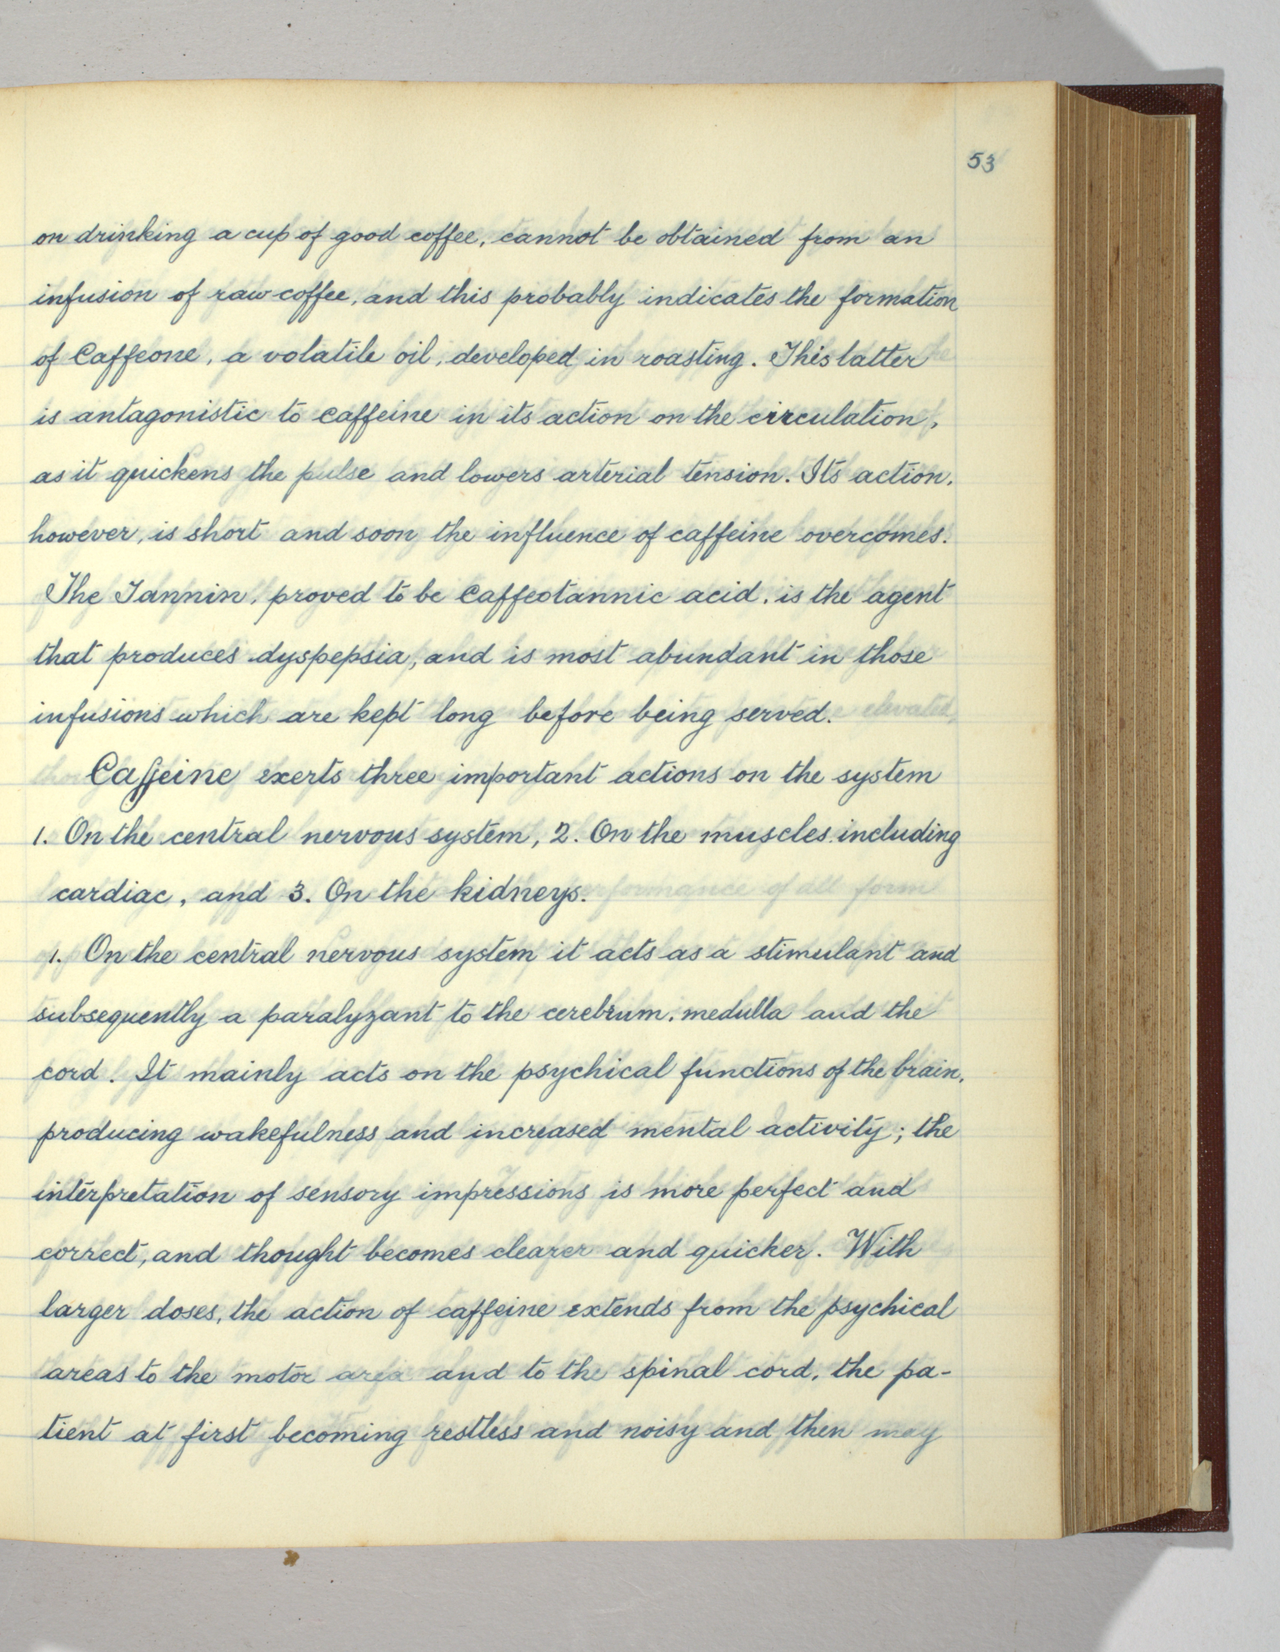 53
on drinking a cup of good coffee, cannot be obtained from an
infusion of raw coffee, and this probably indicates the formation
of Caffeone, a volatile oil, developed in roasting. This latter
is antagonistic to caffeine in its action on the circulation,
as it quickens the pulse and lowers arterial tension. Its action,
however, is short and soon the influence of caffeine overcomes.
The Tannin, proved to be Caffeotannic acid, is the agent
that produces dyspepsia, and is most abundant in those
infusions which are kept long before being served.
Caffeine exerts three important actions on the system
1. On the central nervous system, 2. On the muscles including
cardiac, and 3. On the kidneys.
1. On the central nervous system it acts as a stimulant and
subsequently a paralyzant to the cerebrum, medulla and the
cord. It mainly acts on the psychical functions of the brain,
producing wakefulness and increased mental activity; the
interpretation of sensory impressions is more perfect and
correct, and thought becomes clearer and quicker. With
larger doses, the action of caffeine extends from the psychical
areas to the motor area and to the spinal cord, the pa-
tient at first becoming restless and noisy and then may